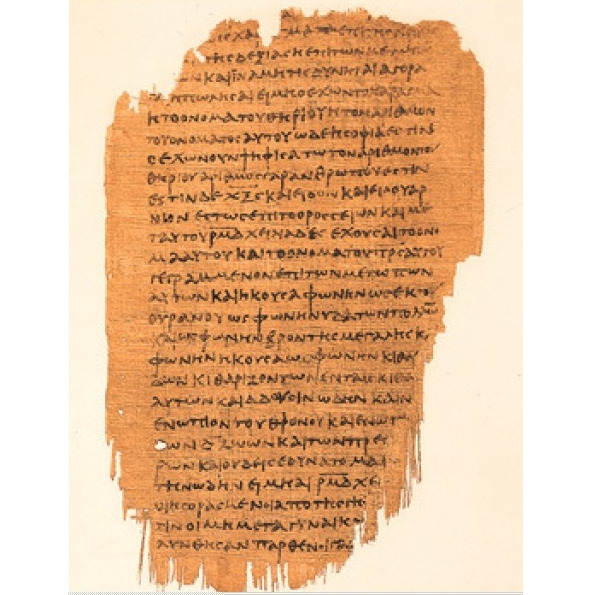 ΧΑΡΑΓΜΑ ΕΠΙ ΤΗΣ
ΤΗΣ ΔΕΞΙΑΣ Η ΕΠΙ ΤΩΝ
ΚΑΙ ΙΝΑ ΜΗ ΤΙΣ ΔΥΝΗΤΑΙ ΑΓΟΡΑ
Η ΠΩΛΗΣΑΙ ΕΙ ΜΗ Ο ΕΧΩΝ ΤΟ ΧΑΡΑΓΜΑ
Η ΤΟ ΟΝΟΜΑ ΤΟΥ ΘΗΡΙΟΥ Η ΤΟΝ ΑΡΙΘΜΟΝ
ΤΟΥ ΟΝΟΜΑΤΟΣ ΑΥΤΟΥ ΩΔΕ Η ΣΟΦΙΑ ΕΣΤΙΝ
Ο ΕΧΩΝ ΟΥΝ ΨΗΦΙΣΑΤΩ ΤΟΝ ΑΡΙΘΜΟΝ ΤΟΥ
ΘΗΡΙΟΥ ΑΡΙΘΜΟΣ ΓΑΡ ΑΝΘΡΩΠΟΥ ΕΣΤΙΝ
ΕΣΤΙΝ ΔΕ ΧΞϚ ΚΑΙ ΕΙΔΟΝ ΚΑΙ ΕΙΔΟΥ ΑΡ
ΝΙΟΝ ΕΣΤΩΣ ΕΠΙ ΤΟ ΟΡΟΣ ΣΕΙΩΝ ΚΑΙ ΜΕ
Τ ΑΥΤΟΥ ΡΜΔ ΧΕΙΛΙΑΔΕΣ ΕΧΟΥΣΑΙ ΤΟ ΟΝΟ
ΜΑ ΑΥΤΟΥ ΚΑΙ ΤΟ ΟΝΟΜΑ ΤΟΥ ΠΡΣ ΑΥΤΟΥ
ΓΕΓΡΑΜΜΕΝΟΝ ΕΠΙ ΤΩΝ ΜΕΤΩΠΩΝ
ΑΥΤΩΝ ΚΑΙ ΗΚΟΥΣΑ ΦΩΝΗΝ ΕΚ ΤΟΥ
ΟΥΡΑΝΟΥ ΩΣ ΦΩΝΗΝ ΥΔΑΤΩΝ ΠΟΛΛΩ
ΚΑΙ ΩΣ ΦΩΝΗΝ ΒΡΟΝΤΗΣ ΜΕΓΑΛΗΣ Κ
ΦΩΝΗΝ ΗΚΟΥΣΑ ΩΣ ΦΩΝΗΝ ΚΙΘΑΡ
ΔΩΝ ΚΙΘΑΡΙΖΟΝΤΩΝ ΕΝ ΤΑΙΣ ΚΙΘ
ΑΥΤΩΝ ΚΑΙ ΑΔΟΥΣΙΝ ΩΔΗΝ ΚΑΙΝ
ΕΝΩΠΙΟΝ ΤΟΥ ΘΡΟΝΟΥ ΚΑΙ ΕΝΩΠ
ΤΩΝ Δ ΖΩΩΝ ΚΑΙ ΤΩΝ ΠΡΕΣ
ΡΩΝ ΚΑΙ ΟΥΔΕΙΣ ΕΔΥΝΑΤΟ ΜΑ
ΤΗΝ ΩΔΗΝ ΕΙ ΜΗ ΑΙ ΡΜΔ ΧΕΙ
ΟΙ ΗΓΟΡΑΣΜΕΝΟΙ ΑΠΟ ΤΗΣ ΓΗΣ
ΤΙΝ ΟΙ ΜΗ ΜΕΤΑ ΓΥΝΑΙΚΩ
ΛΥΝΘΗΣΑΝ ΠΑΡΘΕΝΟΙ ΓΑΡ